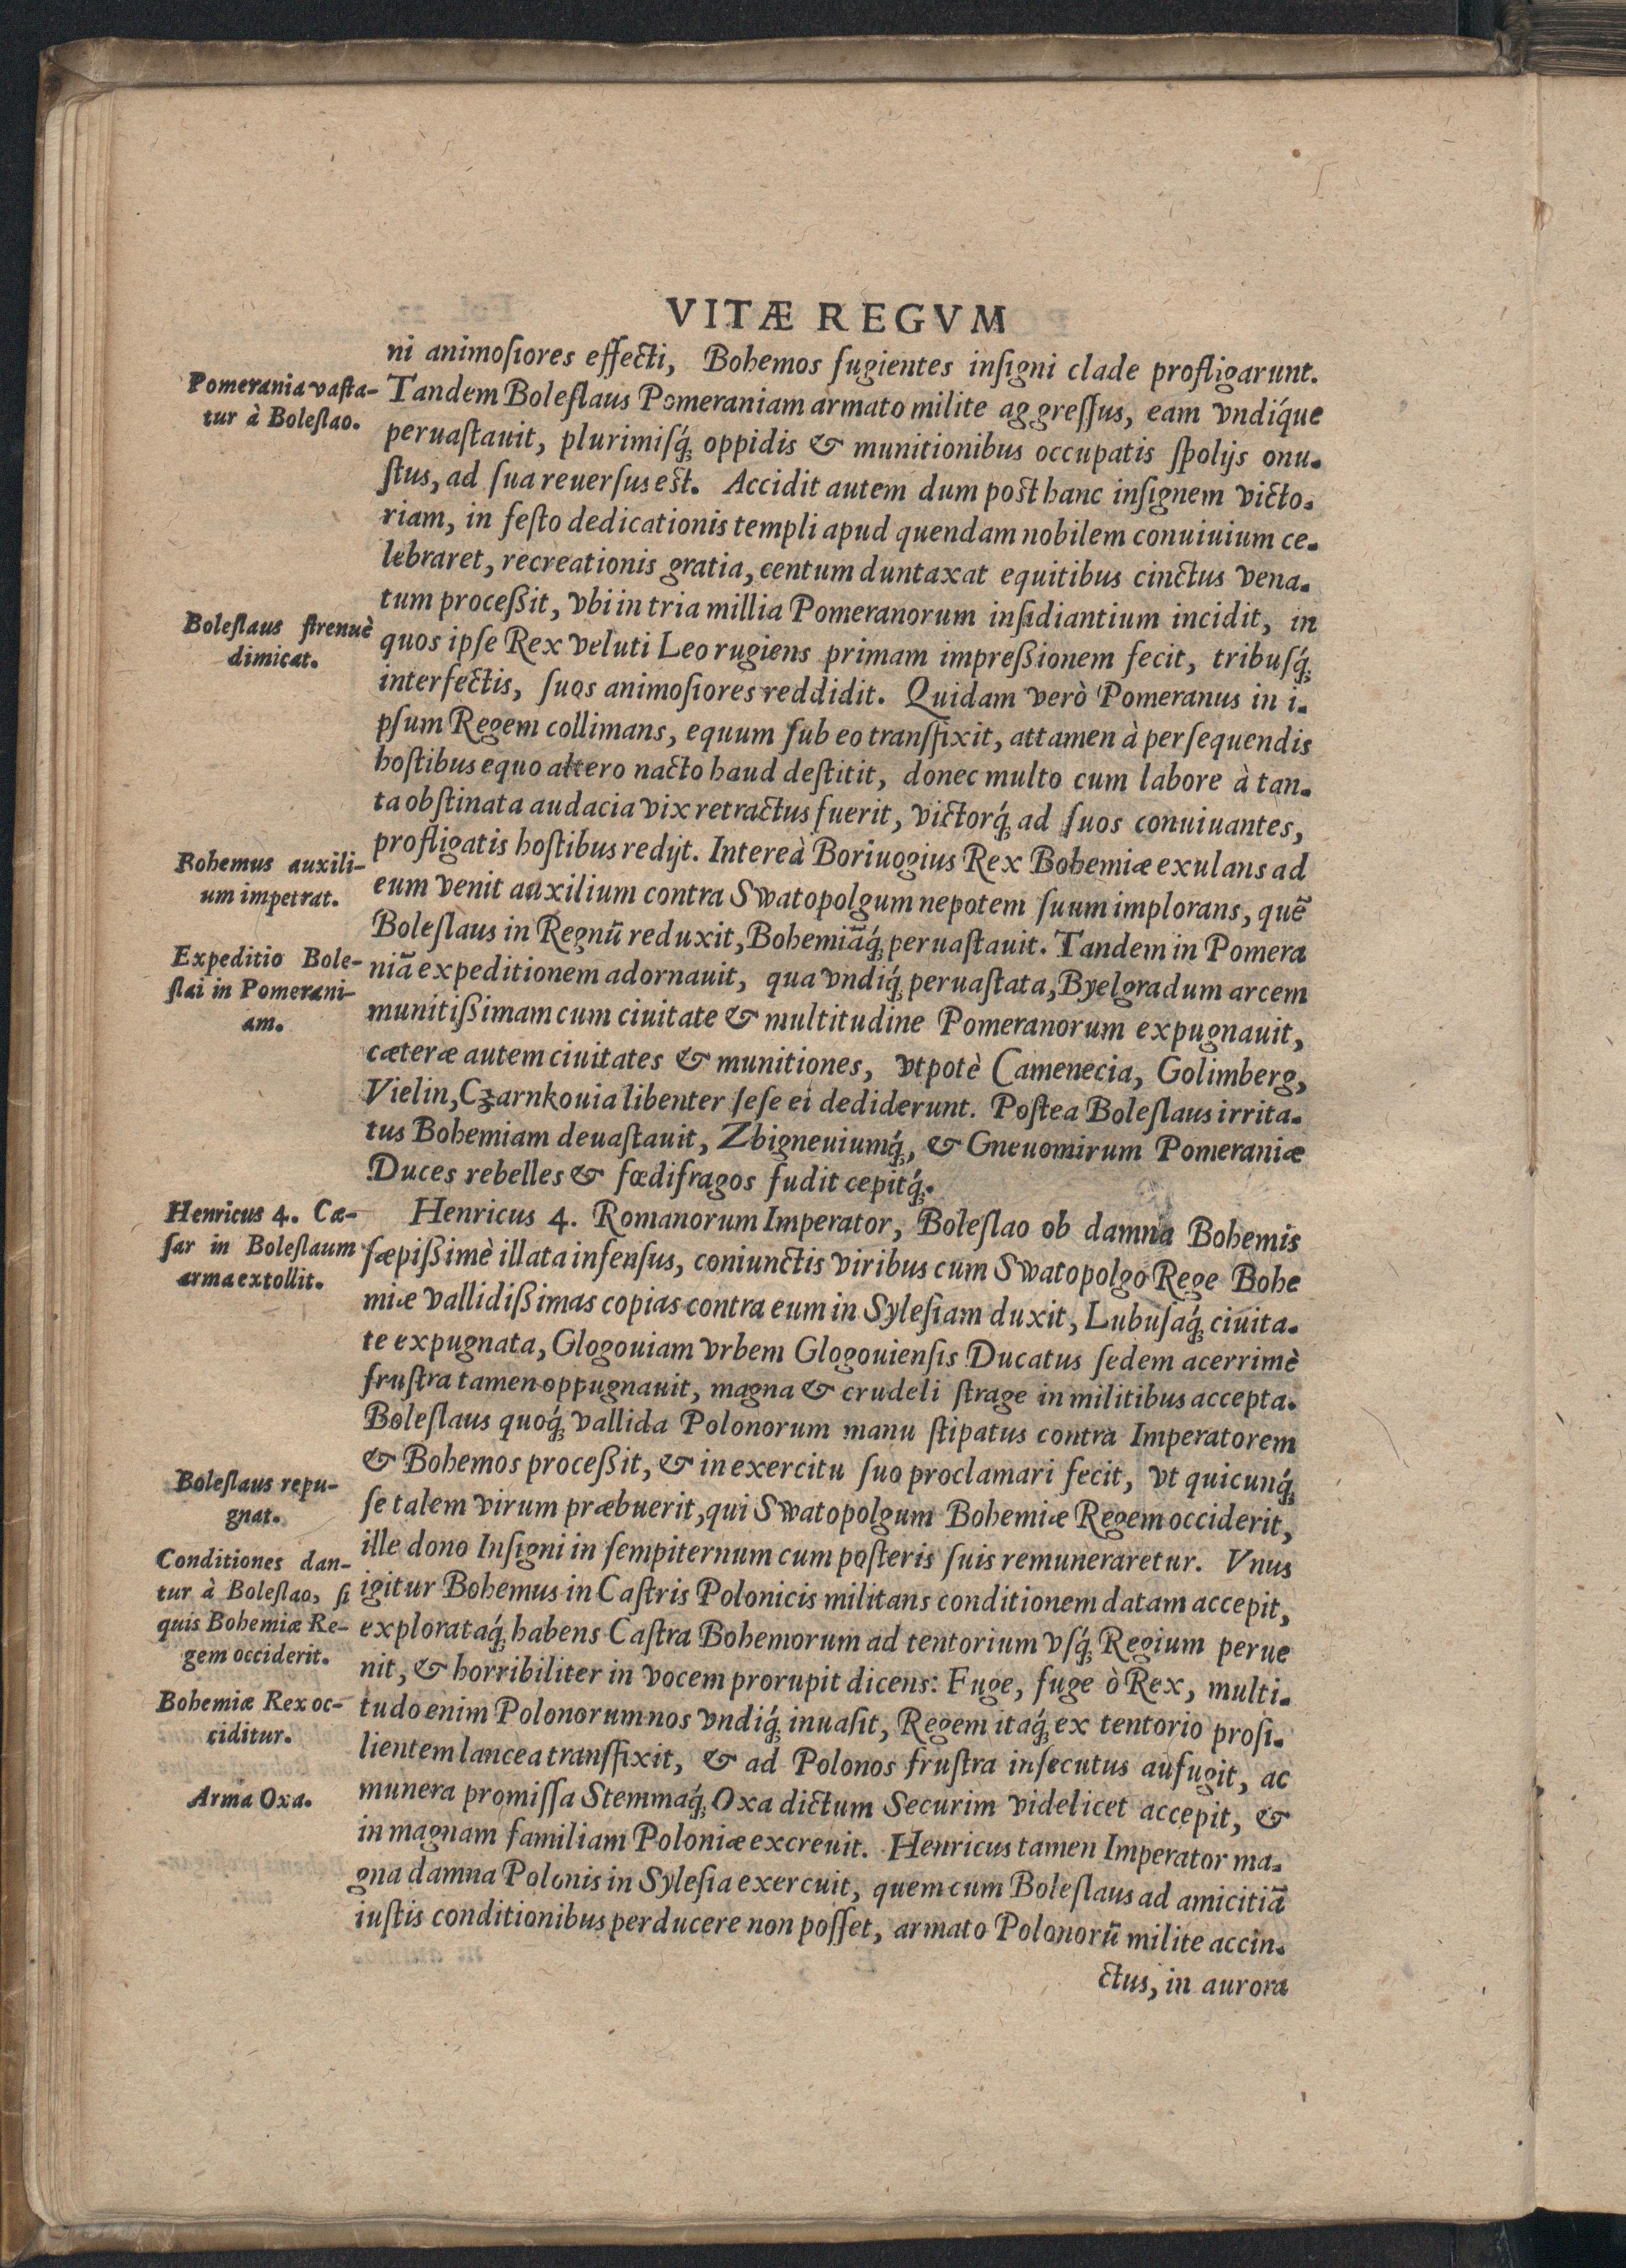 VITÆ REGVM
ni animoſiores effecti, Bohemos fugientes inſigni clade profligarunt.
Pomerania vaſta-
tur à Boleſlao.
Tandem Boleſlaus Pomeraniam armato milite aggreſſus, eam vndíque
peruaſtauit, plurimiſq́; oppidis & munitionibus occupatis ſpolijs onu-
ſtus, ad ſua reuerſus est. Accidit autem dum post hanc inſignem victo-
riam, in feſto dedicationis templi apud quendam nobilem conuiuium ce-
lebraret, recreationis gratia, centum duntaxat equitibus cinctus vena-
tum proceßit, vbi in tria millia Pomeranorum inſidiantium incidit, in
Boleſlaus ſtrenuè
dimicat.
quos ipſe Rex veluti Leo rugiens primam impreßionem fecit, tribuſq́;
interfectis, ſuos animoſiores reddidit. Quidam verò Pomeranus in i-
pſum Regem collimans, equum ſub eo transfixit, attamen à perſequendis
hoſtibus equo altero nacto haud deſtitit, donec multo cum labore à tan-
ta obſtinata audacia vix retractus fuerit, victorq́; ad ſuos conuiuantes,
profligatis hoſtibus redijt. Intereà Boriuogius Rex Bohemiæ exulans ad
Bohemus auxili-
um impetrat.
eum venit auxilium contra Swatopolgum nepotem ſuum implorans, quẽ
Boleſlaus in Regnũ reduxit, Bohemiãq́; peruaſtauit. Tandem in Pomera
Expeditio Bole-
ſlai in Pomerani-
am.
niã expeditionem adornauit, qua vndiq́; peruaſtata, Byelgradum arcem
munitißimam cum ciuitate & multitudine Pomeranorum expugnauit,
cæteræ autem ciuitates & munitiones, vtpotè Camenecia, Golimberg,
Vielin, Czarnkouia libenter ſeſe ei dediderunt. Poſtea Boleſlaus irrita-
tus Bohemiam deuaſtauit, Zbigneuiumq́;, & Gneuomirum Pomeraniæ
Duces rebelles & fœdifragos fudit cepitq́;.
Henricus 4. Cæ-
ſar in Boleſlaum
arma extollit.
Henricus 4. Romanorum Imperator, Boleſlao ob damna Bohemis
ſæpißimè illata infenſus, coniunctis viribus cum Swatopolgo Rege Bohe
miæ vallidißimas copias contra eum in Syleſiam duxit, Lubuſaq́; ciuita-
te expugnata, Glogouiam vrbem Glogouienſis Ducatus ſedem acerrimè
fruſtra tamen oppugnauit, magna & crudeli ſtrage in militibus accepta.
Boleſlaus quoq́; vallida Polonorum manu ſtipatus contra Imperatorem
Boleſlaus repu-
gnat.
& Bohemos proceßit, & in exercitu ſuo proclamari fecit, vt quicunq́;
ſe talem virum præbuerit, qui Swatopolgum Bohemiæ Regem occiderit,
ille dono Inſigni in ſempiternum cum poſteris ſuis remuneraretur. Vnus
Conditiones dan-
tur à Boleſlao, ſi
quis Bohemiæ Re-
gem occiderit.
igitur Bohemus in Caſtris Polonicis militans conditionem datam accepit,
explorataq́; habens Caſtra Bohemorum ad tentorium vſq́; Regium perue
nit, & horribiliter in vocem prorupit dicens: Fuge, fuge ò Rex, multi-
Bohemiæ Rex oc-
ciditur.
tudo enim Polonorum nos vndiq́; inuaſit, Regem itaq́; ex tentorio proſi-
lientem lancea transfixit, & ad Polonos fruſtra inſecutus aufugit, ac
Arma Oxa.
munera promiſſa Stemmaq́; Oxa dictum Securim videlicet accepit, &
in magnam familiam Poloniæ excreuit. Henricus tamen Imperator ma-
gna damna Polonis in Syleſia exercuit, quem cum Boleſlaus ad amicitiã
iuſtis conditionibus perducere non poſſet, armato Polonorũ milite accin-
ctus, in aurora